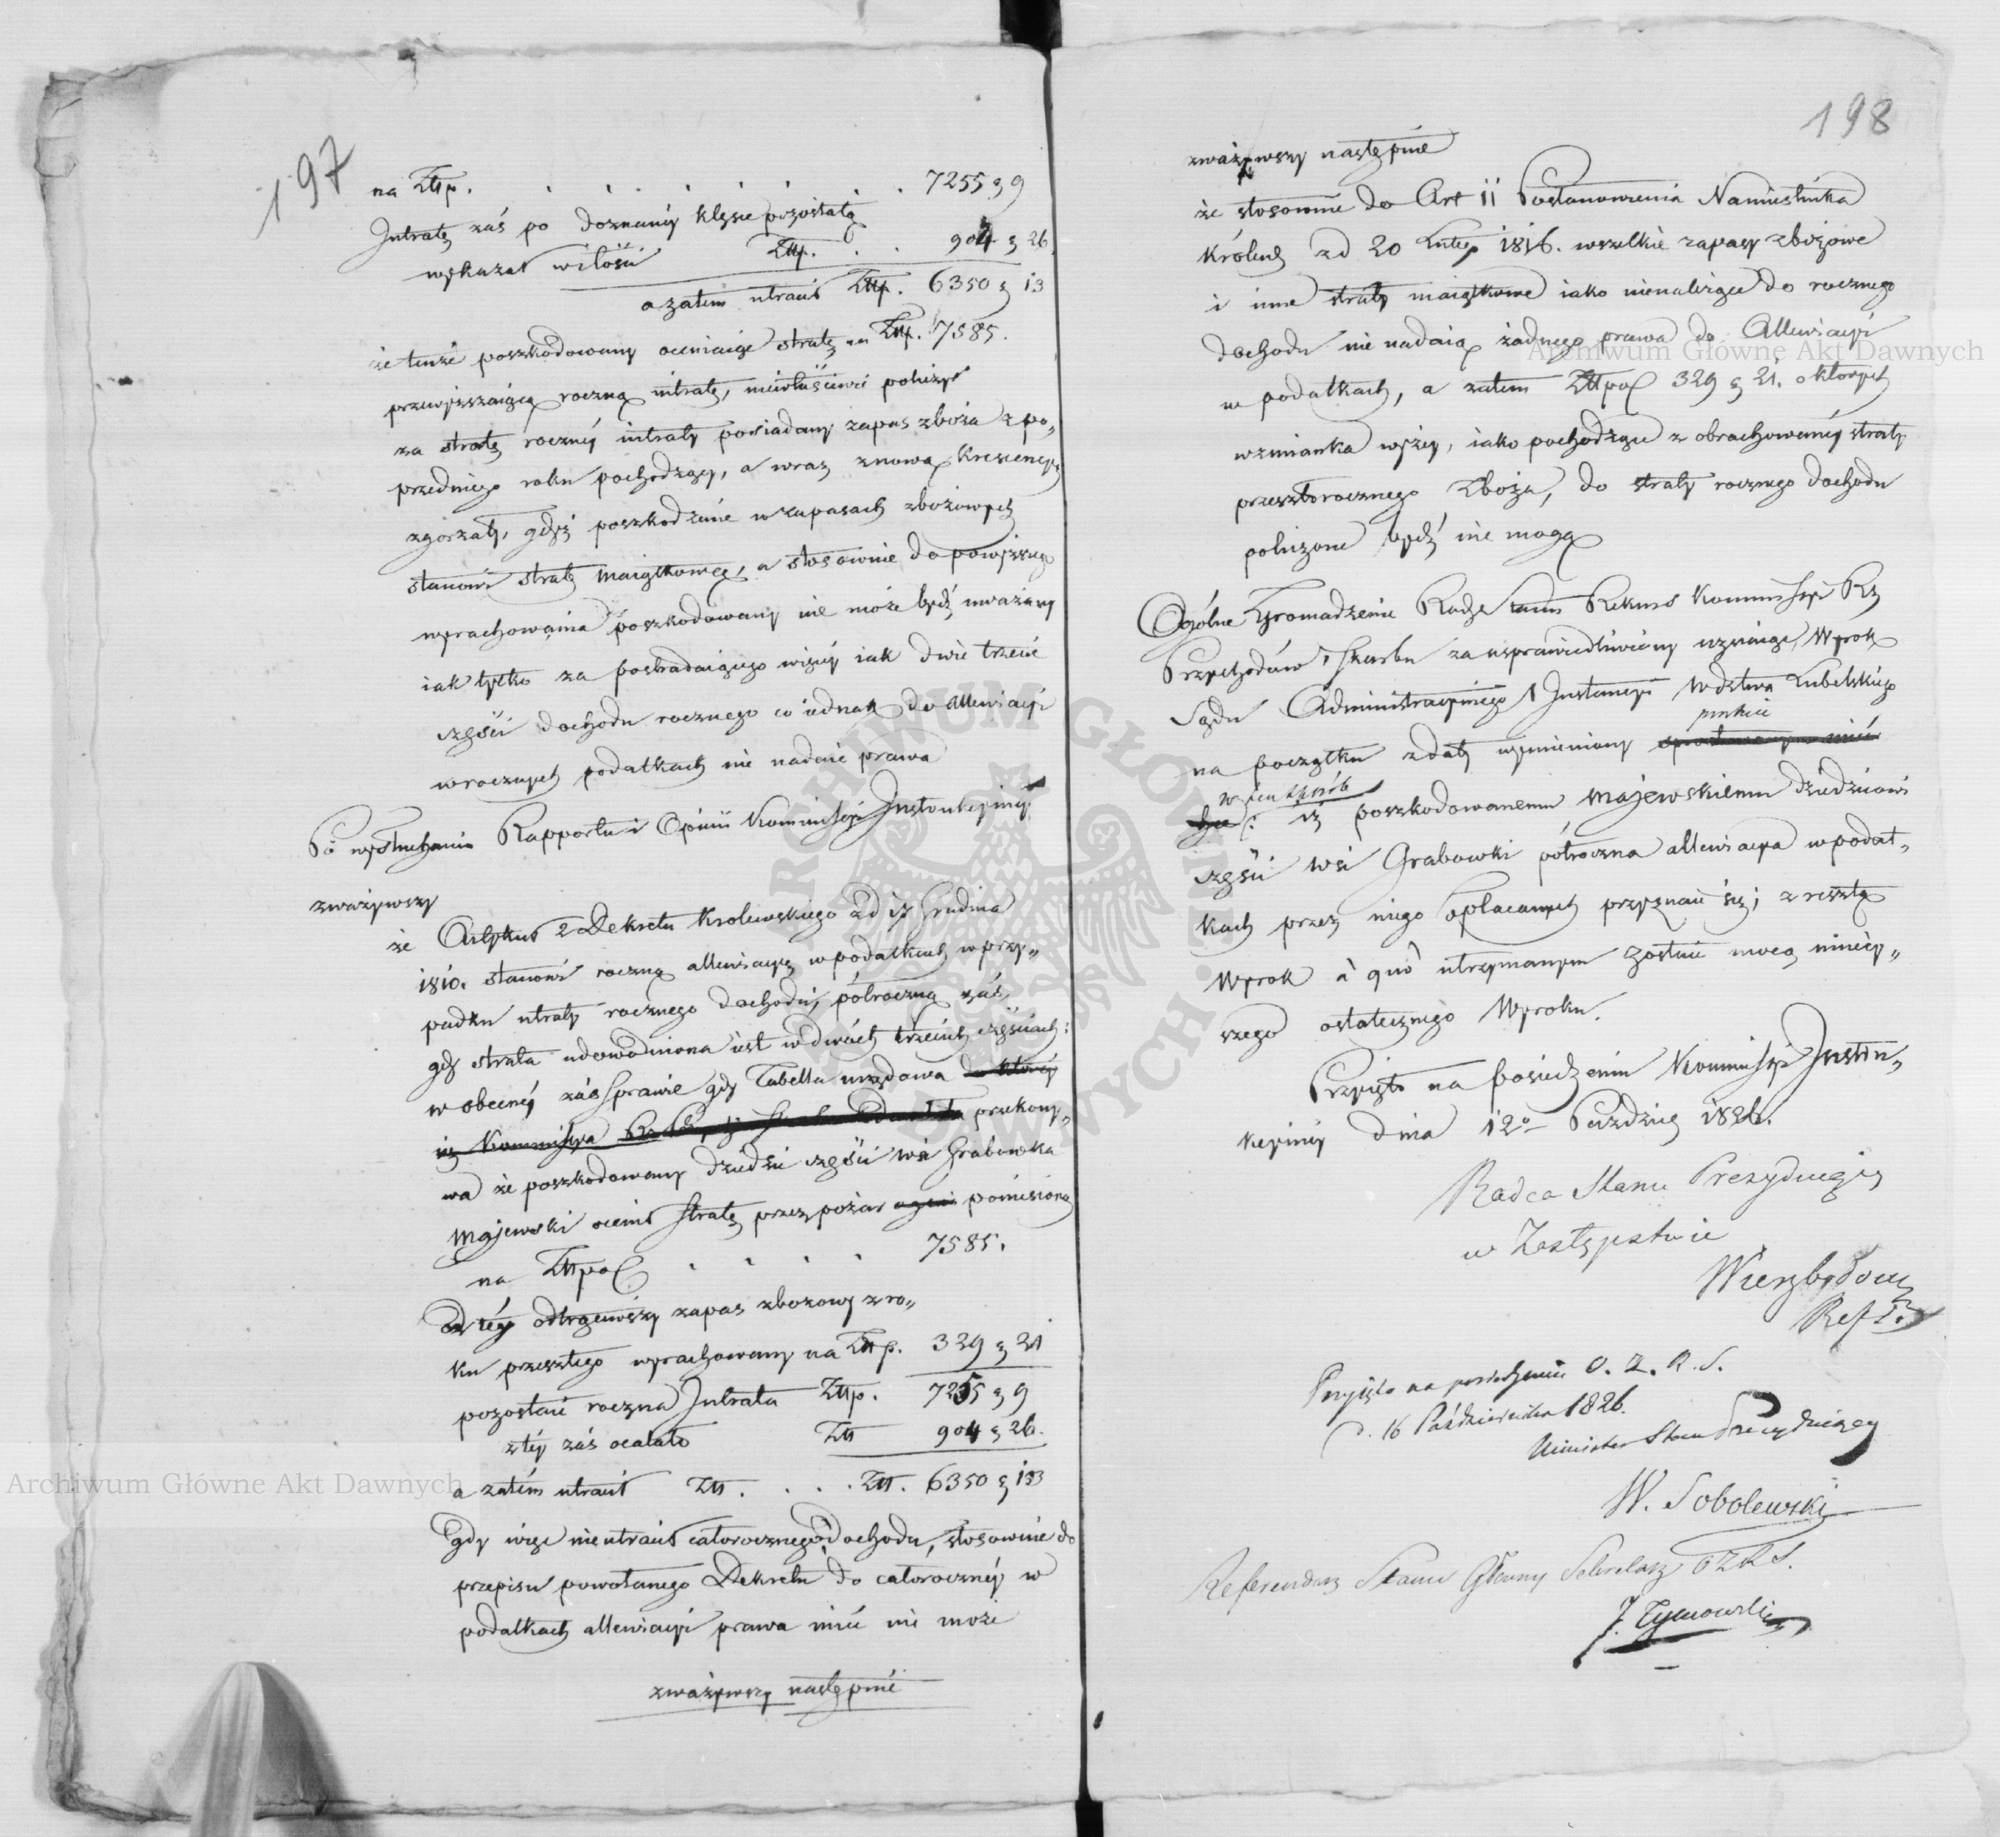 197
na Złłp. . . . . . . 7255 g 9
Intratę zaś po doznaney klęsce pozostałą
wykazał w ilości Złłp. . . 904 g 26
a zatem utracił Złłp. 6350 g 13
że tenże poszkodowany oceniaiąc stratę na Złłp. 7585.
przewyższaiącą roczną intratę, niewłaściwie policzył
za stratę roczney intraty posiadany zapas zboża z po„
przedniego roku pochodzący, a wraz z nową krescencyą
zgorzały, gdyż poszkodzenie w zapasach zbożowych
stanowi stratę maiątkową, a stosownie do powyższego
wyrachowania poszkodowany nie może bydź uważany
iak tylko za postradaiącego więcey iak dwie trzecie
części dochodu rocznego co iednak do allewiacyi
w rocznych podatkach nie nadaie prawa
Po wysłuchaniu Rapportu i Opinii Kommissyi Instrukcyiney
zważywszy
że Artykuł 2 Dekretu Królewskiego z d 17 Grudnia
1810. stanowi roczną allewiacyę w podatkach w przy„
padku utraty rocznego dochodu, półroczną zaś
gdy strata udowodniona iest w dwóch trzecich częściach:
w obecney zaś sprawie gdy Tabella urzędowa do którey
iey Kommissya prekony„
wa że poszkodowany dziedzic części wsi Grabowka
Majewski ocenił stratę przez pożar ognia poniesioną
na Złłpol . . . . 7585.
od tey odtrąciwszy zapas zbożowy z ro„
ku przeszłego wyrachowany na Złłp. 329 g 21
pozostaie roczna Intrata Złłp. 7255 g 9
z tey zaś ocalało Złł 904 g 26.
a zatem utracił Złł . . . . Złł. 6350 g 13
gdy więc nie utracił całorocznego dochodu, stosownie do
przepisu powołanego Dekretu do całoroczney w
podatkach allewiacyi prawa mieć nie może
zważywszy następnie
198
zważywszy następnie
że stosownie do Art 11 Postanowienia Namiestnika
Królews z d 20 Lutego 1816. wszelkie zapasy zbożowe
i inne straty maiątkowe iako nienależące do rocznego
dochodu nie nadaią żadnego prawa do Allewiacyi
w podatkach, a zatem Złłpol 329 g 21. o których
wzmianka wyżey, iako pochodzące z obrachowaney straty
przeszłorocznego zboża, do straty rocznego dochodu
policzone bydź nie mogą
Ogólne Zgromadzenie Rady Stanu Rekurs Kommissyi Rz
Przychodów i Skarbu za usprawiedliwiony uznaiąc, Wyrok
Sądu Administracyinego 1 Instancyi Wdztwa Lubelskiego
na początku z daty wymieniony
punkcie
w ten sposób
iż poszkodowanemu Majewskiemu Dziedzicowi
części wsi Grabowki półroczna allewiacya w podat„
kach przez niego opłacanych przyznaie się; z resztą
Wyrok à quo utrzymanym zostaie mocą ninieey„
szego ostatecznego Wyroku.
Przyięto na posiedzeniu Kommissyi Instru„
kcyiney dnia 12º Paździer 1826.
Radca Stanu Prezyduiący
w Zastępstwie
Wierzbołowicz
Ref S.
Przyięto na posiedzeniu O. Z. R. S.
d. 16 Października 1826.
Minister Stanu Prezyduiący
W. Sobolewski
Referendarz Stanu Główny Sekretarz OZRS.
J. Tymowski
Archiwum Główne Akt Dawnych
Archiwum Główne Akt Dawnych
ARCHIWUM GŁÓWNE AKT DAWNYCH